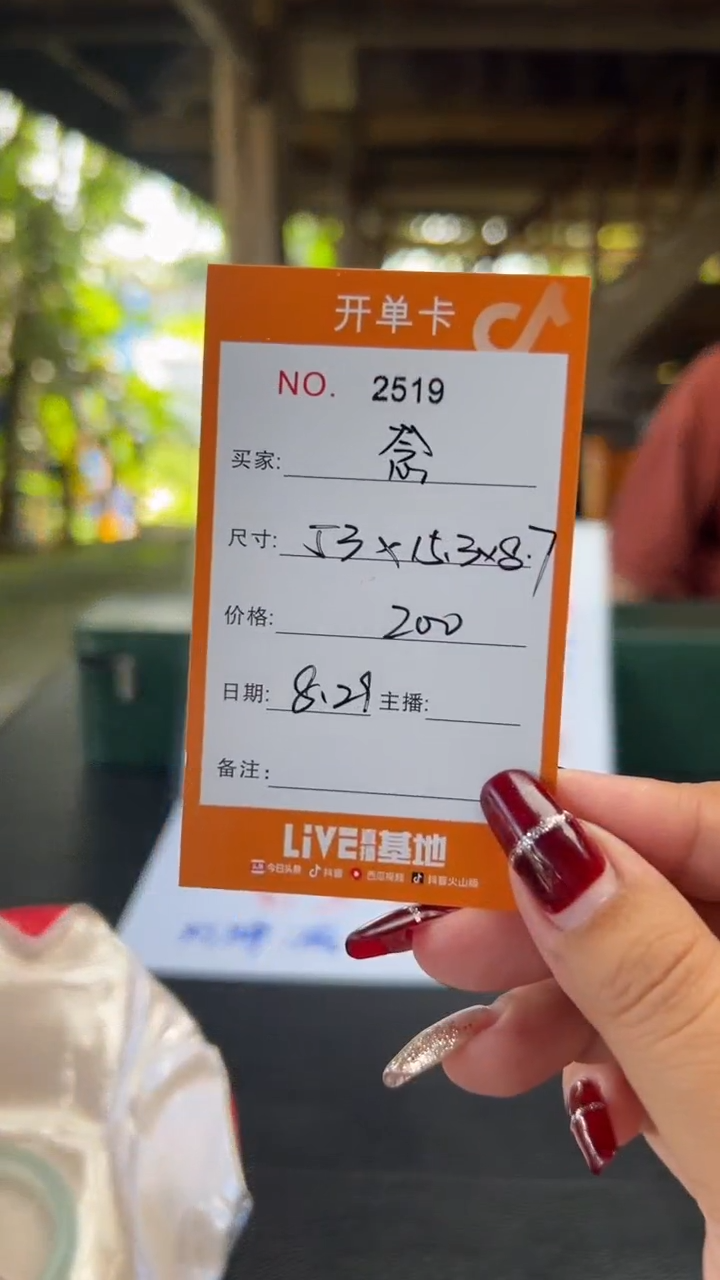 开单卡
NO. 2519
买家: 念
尺寸: 53×15.3×8.7
价格: 200
日期: 8.29 主播:
备注:
LiVE直播基地
今日头条 抖音 西瓜视频 抖音火山版